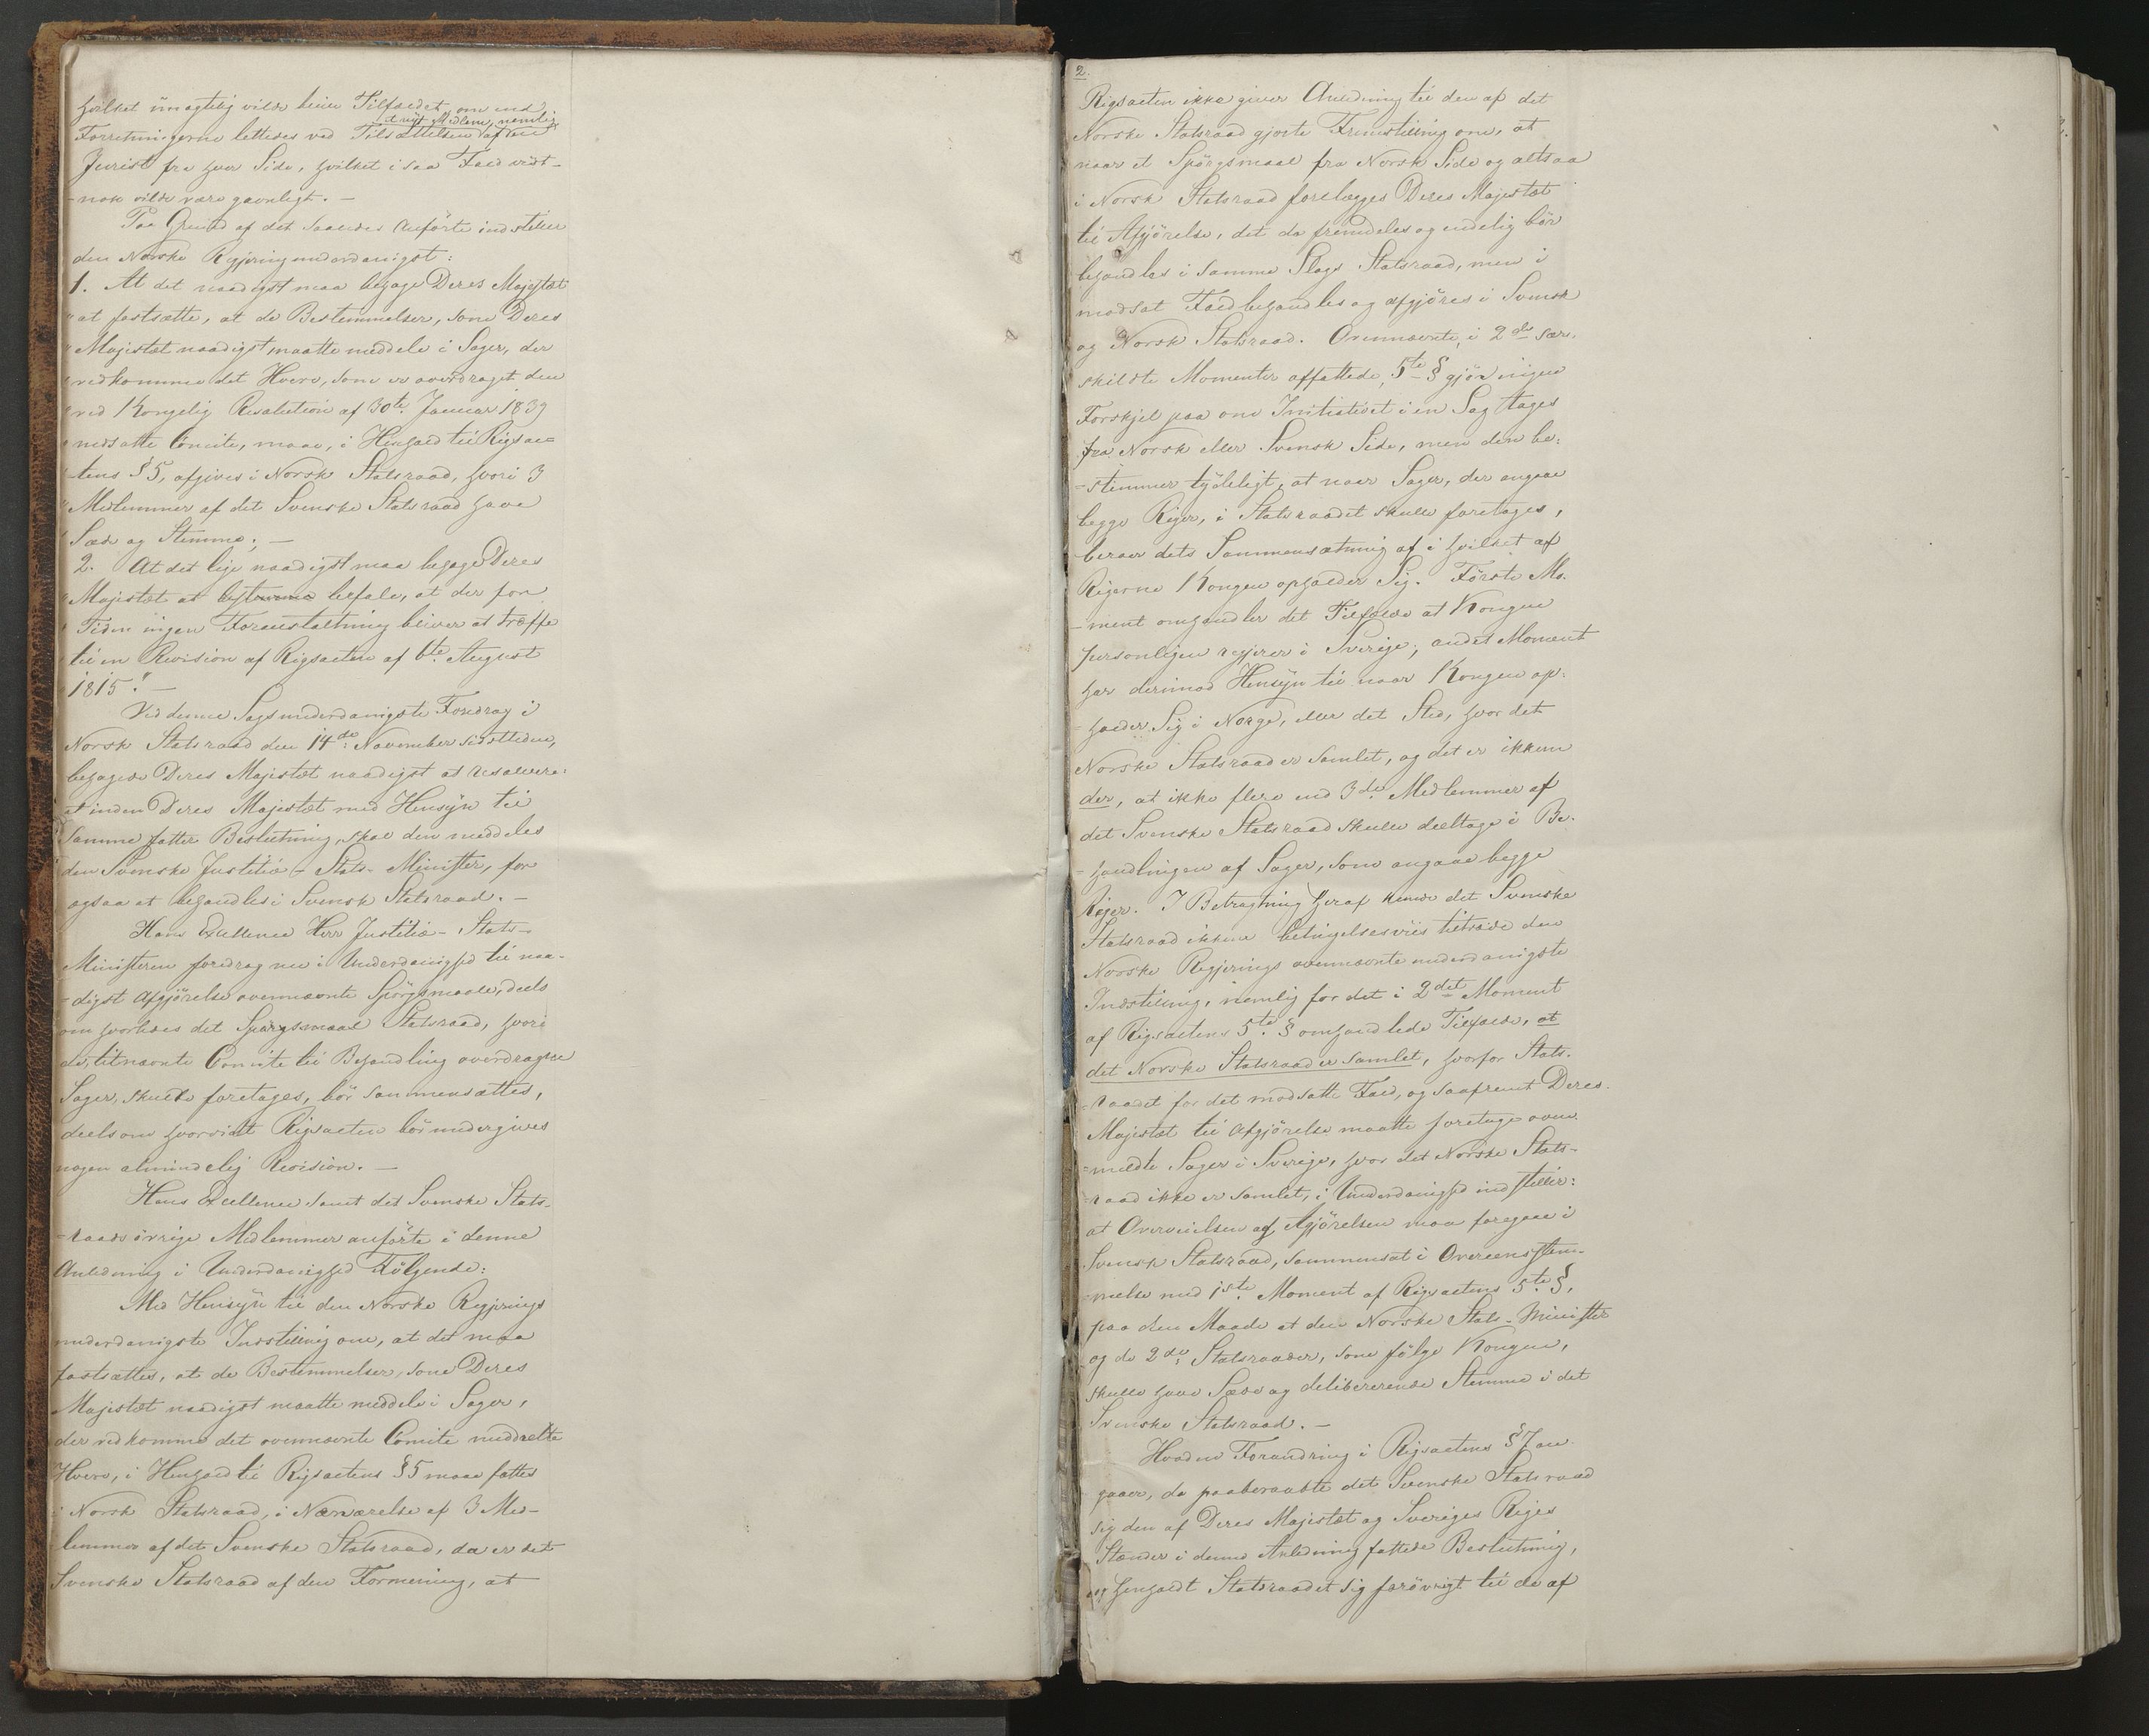 hvilket umagelig vilde blive Tilfældet, om end
et nyt Medlem, nemlig
Forretningerne lettedes ved Tilsættelsen af een
Jurist fra hver Side, hvilket i saa Fald vist-
-nok vilde være gavnligt. -
Paa Grund af det saaledes Anførte indstiller
den Norske Regjering underdanigst:
1. At det naadigst maa behage Deres Majestæt
" at fastsætte, at de Bestemmelser, som Deres
" Majestæt naadigst maatte meddele i Sager, der
" vedkomme det Hverv, som er overdraget den
" ved Kongelig Resolution af 30te Januar 1839
" nedsatte Comite, maae, i Henhold til Rigsac=
-tens §5, afgives i Norsk Statsraad, hvori 3
" Medlemmer af det Svenske Statsraad have
" Sæde og Stemme; -
2. At det lige naadigst maa behage Deres
" Majestæt at bestemme befale, at der for
" Tiden ingen Foranstaltning bliver at træffe
til en Revision af Rigsacten af 6te August
1815." -
Ved denne Sags underdanigste Foredrag i
Norsk Statsraad den 14de November sidstleden,
behagede Deres Majestæt naadigst at resolvere:
at inden Deres Majestæt med Hensyn til
Samme fatter Beslutning, skal den meddeles
den Svenske Justitiæ-Stats-Minister, for
ogsaa at behandles i Svensk Statsraad. -
Hans Excellence Herr Justitiæ-Stats-
Ministeren foredrog nu i Underdanighed til naa-
-digst Afgjörelse ovennævnte Spörgsmaale, deels
om hvorledes det Spörgsmaal Statsraad, hvori
de, titnævnte Comite til Behandling overdragne
Sager, skulde foretages, bör sammensættes,
deels om hvorvidt Rigsacten bör undergives
nogen almindelig Revision. -
Hans Excellence samt det Svenske Stats-
-raads övrige Medlemmer anförte i denne
Anledning i Underdanighed Fölgende:
Med Hensyn til den Norske Regjerings
underdanigste Indstilling om, at det maa
fastsættes, at de Bestemmelser, som Deres
Majestæt naadigst maatte meddele i Sager,
der vedkomme det ovennævnte Comite meddeelte
Hverv, i Henhold til Rigsactens §5 maae fattes
i Norsk Statsraad, i Nærværelse af 3 Med-
lemmer af det Svenske Statsraad, da er det
Svenske Statsraad af den Formening, at
2.
Rigsacten ikke giver Anledning til den af det
Norske Statsraad gjorte Fremstilling om, at
naar et Spörgsmaal fra Norsk Side og altsaa
i Norsk Statsraad forelægges Deres Majestæt
til Afgjörelse, det da fremdeles og endelig bör
behandles i samme Slags Statsraad, men i
modsat Fald behandles og afgjöres i Svensk
og Norsk Statsraad. Ovennævnte, i 2de sær-
skildte Momenter affattede, 5te § gjör ingen
Forskjel paa om Initiativet i en Sag tages
fra Norsk eller Svensk Side, men den be=
=stemmer tydeligt, at naar Sager, der angaae
begge Riger, i Statsraadet skulle foretages,
beroer dets Sammensætning af i hvilket af
Rigerne Kongen opholder Sig. Förste Mo-
-ment omhandler det Tilfælde at Kongen
personligen regjerer i Sverige; andet Moment
har derimod Hensyn til naar Kongen op-
-holder Sig i Norge, eller det Sted, hvor det
Norske Statsraad er samlet, og det er ikkun
der, at ikke flere end 3de Medlemmer af
det Svenske Statsraad skulle deeltage i Be-
-handlingen af Sager, som angaae begge
Riger. I Betragtning heraf kunde det Svenske
Statsraad ikkun betingelsesviis tiltræde den
Norske Regjerings ovennævnte underdanigste
Indstilling, nemlig for det i 2det Moment
af Rigsactens 5te § omhandlede Tilfælde, at
det Norske Statsraad er samlet, hvorfor Stats-
-raadet for det modsatte Fald, og saafremt Deres
Majestæt til Afgjörelse maatte foretage oven-
=meldte Sager i Sverige, hvor det Norske Stats-
-raad ikke er samlet, i Underdanighed indstiller:
at Overveielsen og Afgjörelsen maa foregaae i
Svensk Statsraad, sammensat i Overeensstem-
-melse med 1ste Moment af Rigsactens 5te §,
paa den Maade at den Norske Stats-Minister
og de 2de Statsraader, som fölge Kongen,
skulle have Sæde og delibererende Stemme i det
Svenske Statsraad. -
Hvad en Forandring i Rigsactens §7 an-
gaaer, da paaberaabte det Svenske Statsraad
sig den af Deres Majestæt og Sveriges Riges
Stænder i denne Anledning fattede Beslutning,
og henholdt Statsraadet sig forövrigt til de af